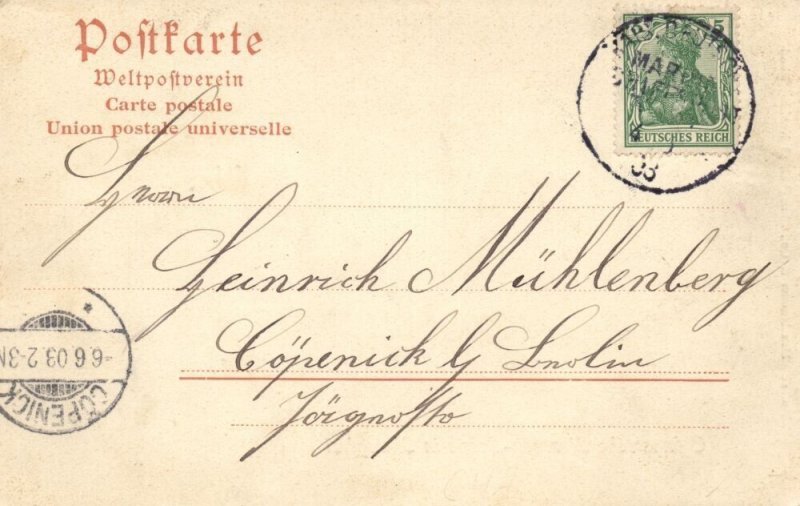 Postkarte
Weltpostverein
Carte postale
Union postale universelle
5
DEUTSCHES REICH
MAR.
03
Herrn
Heinrich Mühlenberg
Cöpenick b/ Berlin
-6.6.03.2-3N
CÖPENICK